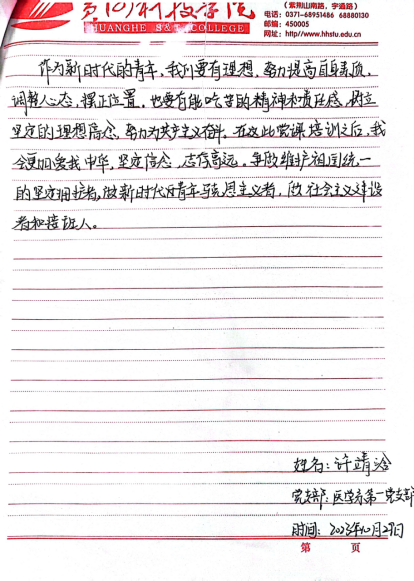 黄河科技学院
HUANGHE S&T COLLEGE
(紫荆山南路,宇通路)
电话: 0371-68951486 68880130
邮编: 450005
网址: http://www.hhstu.edu.cn
作为新时代的青年,我们要有理想,努力提高自身素质,
调整心态,摆正位置,也要有能吃苦的精神和责任感,树立
坚定的理想信念,努力为共产主义奋斗。在这此党课培训之后,我
会更加爱我中华,坚定信念,志存高远。争做维护祖国统一
的坚定拥护者,做新时代的青年马克思主义者,做社会主义建设
者和接班人。
姓名:许靖
党支部:医学系第一党支部
时间:2023年10月29日
第 页